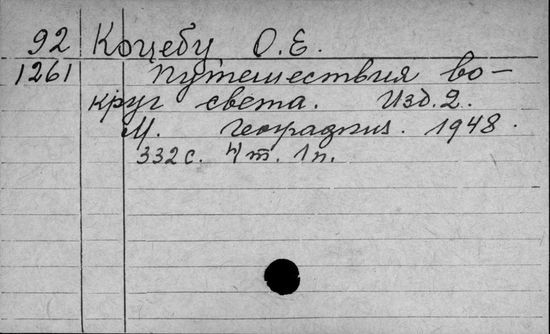 92 Коцебу О.Е.
1261 Путешествия во-
круг света. Изд. 2.
М. Географгиз. 1948.
332 с. Чт. 1п.